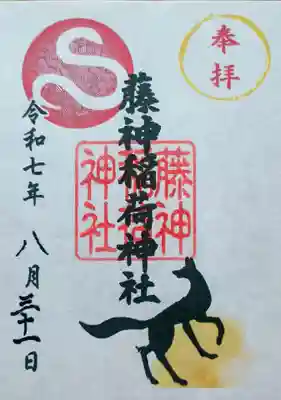 奉拝
藤神稲荷神社
藤神
稲荷
神社
令和七年 八月三十一日